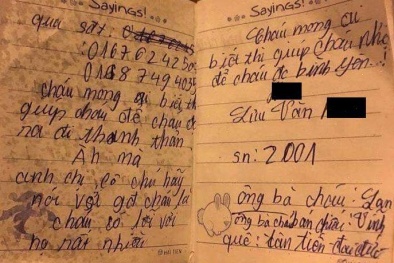 Sayings!
qua sđt:
: 0167624250
0168 749 4035
cháu mong ai biết thì
giúp cháu để cháu đc
ra đi thanh thản
À mà
anh chị, cô chú hãy
nói với gđ cháu là
cháu có lỗi với
họ rất nhiều
Sayings!
Cháu mong ai
biết thì giúp cháu nhé
để cháu đc bình yên..!
Lưu Văn
sn: 2001
ông bà cháu: Lan
ông bà cháu bán cháu: Vinh
quê: tân tiến